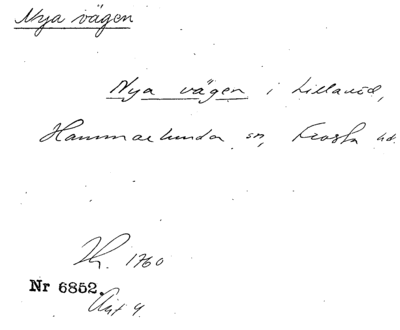 Nya vägen
Nya vägen i Lillaröd,
Hammarlunda sn, Frosta hd.
1760
Nr 6852.